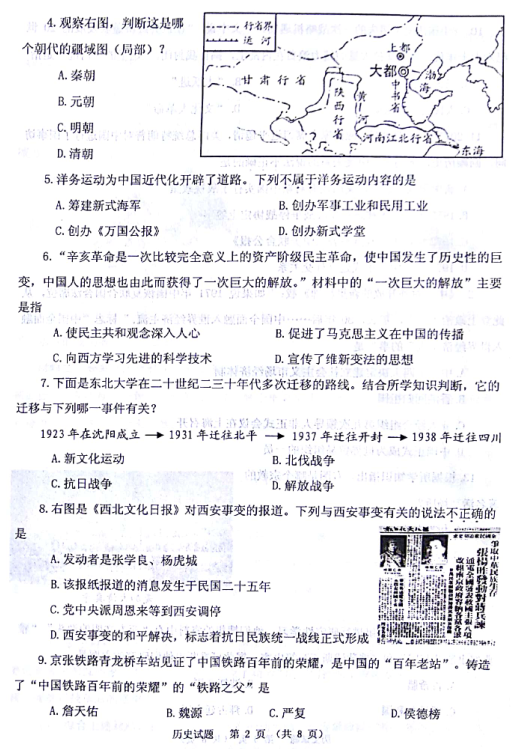 4.观察右图，判断这是哪
个朝代的疆域图（局部）？
A.秦朝
B.元朝
C.明朝
D.清朝
行省界
运河
上都
大都
渤海
中书省
甘肃行省
陕西行省
黄河
河南江北行省
东海
5.洋务运动为中国近代化开辟了道路。下列不属于洋务运动内容的是
A.筹建新式海军
B.创办军事工业和民用工业
C.创办《万国公报》
D.创办新式学堂
6.“辛亥革命是一次比较完全意义上的资产阶级民主革命，使中国发生了历史性的巨
变，中国人的思想也由此而获得了一次巨大的解放。”材料中的“一次巨大的解放”主要
是指
A.使民主共和观念深入人心
B.促进了马克思主义在中国的传播
C.向西方学习先进的科学技术
D.宣传了维新变法的思想
7.下面是东北大学在二十世纪二三十年代多次迁移的路线。结合所学知识判断，它的
迁移与下列哪一事件有关？
1923年在沈阳成立→1931年迁往北平→1937年迁往开封→1938年迁往四川
A.新文化运动
B.北伐战争
C.抗日战争
D.解放战争
8.右图是《西北文化日报》对西安事变的报道。下列与西安事变有关的说法不正确的
是
A.发动者是张学良、杨虎城
B.该报纸报道的消息发生于民国二十五年
C.党中央派周恩来等到西安调停
D.西安事变的和平解决，标志着抗日民族统一战线正式形成
争取中华民族生存
张杨昨发动对蒋兵谏
通电全国发表救国主张八项
9.京张铁路青龙桥车站见证了中国铁路百年前的荣耀，是中国的“百年老站”。铸造
了“中国铁路百年前的荣耀”的“铁路之父”是
A.詹天佑
B.魏源
C.严复
D.侯德榜
历史试题 第 2 页（共 8 页）